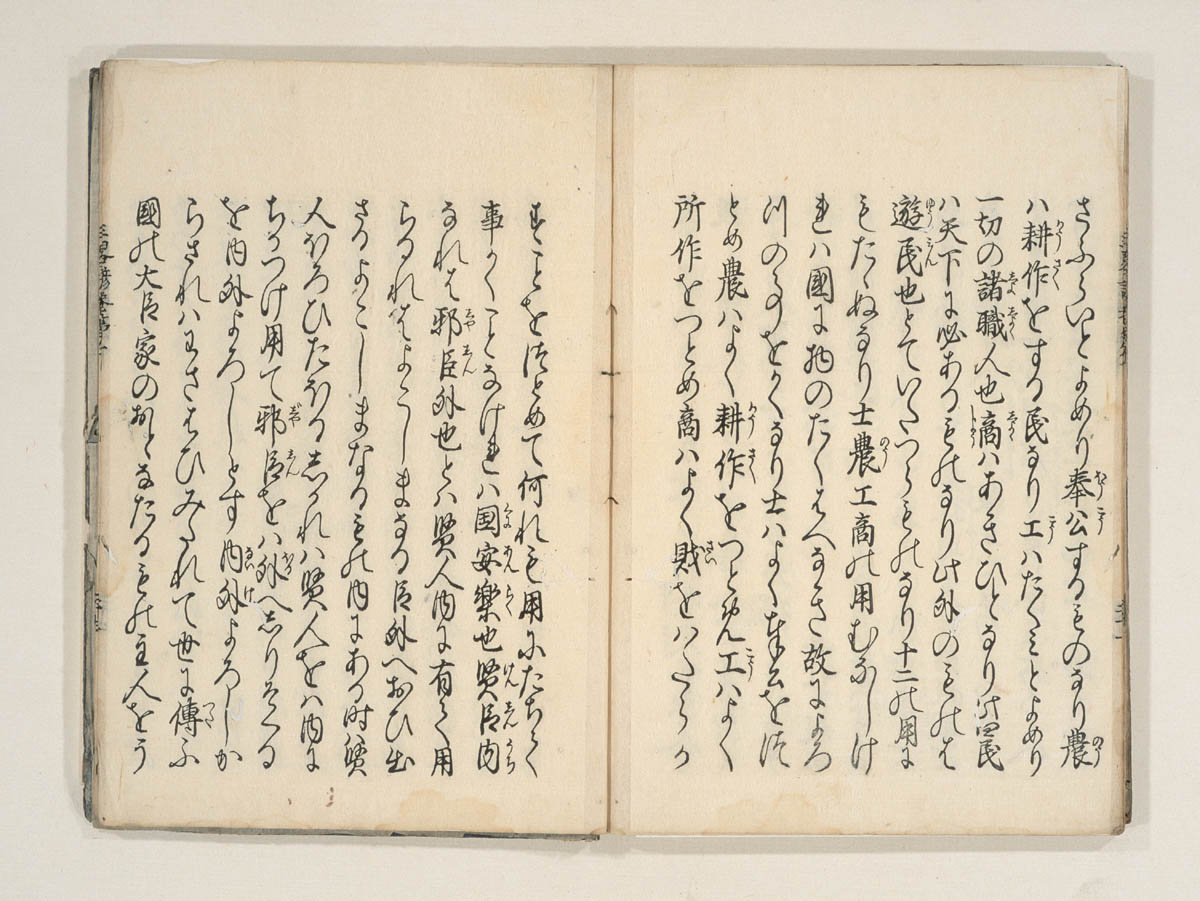 さふらいとよめり奉公するものなり農
ハ耕作をする民なり工ハたくミとよめり
一切の諸職人也商ハあきひとなり此四民
ハ天下に必あるものなり此外のものは
遊民也とていたつらものなり十二の用に
もたゝぬなり士農工商の用むなしけ
れハ国に物のたくはへなき故によろ
つのうをかくなり士ハよく奉公を
とめ農ハよく耕作をつとめ工ハよく
所作をつとめ商ハよく財をハたらか
すことをつとめて何れも用にたちて
事かくことなけれハ国安楽也賢臣内
なれは邪臣外也とハ賢人内に有て用
らるれはよこしまなる臣外へおひ出
さるよこしまなるもの内にある時ハ賢
人ほろひたほるしかれハ賢人をハ内に
ちかつけ用て邪臣をハ外へしりそくる
を内外よろしとす内外よろしか
らされハわさはひみたれて世に傳ふ
國の大臣家のおとなたるもの主人をう